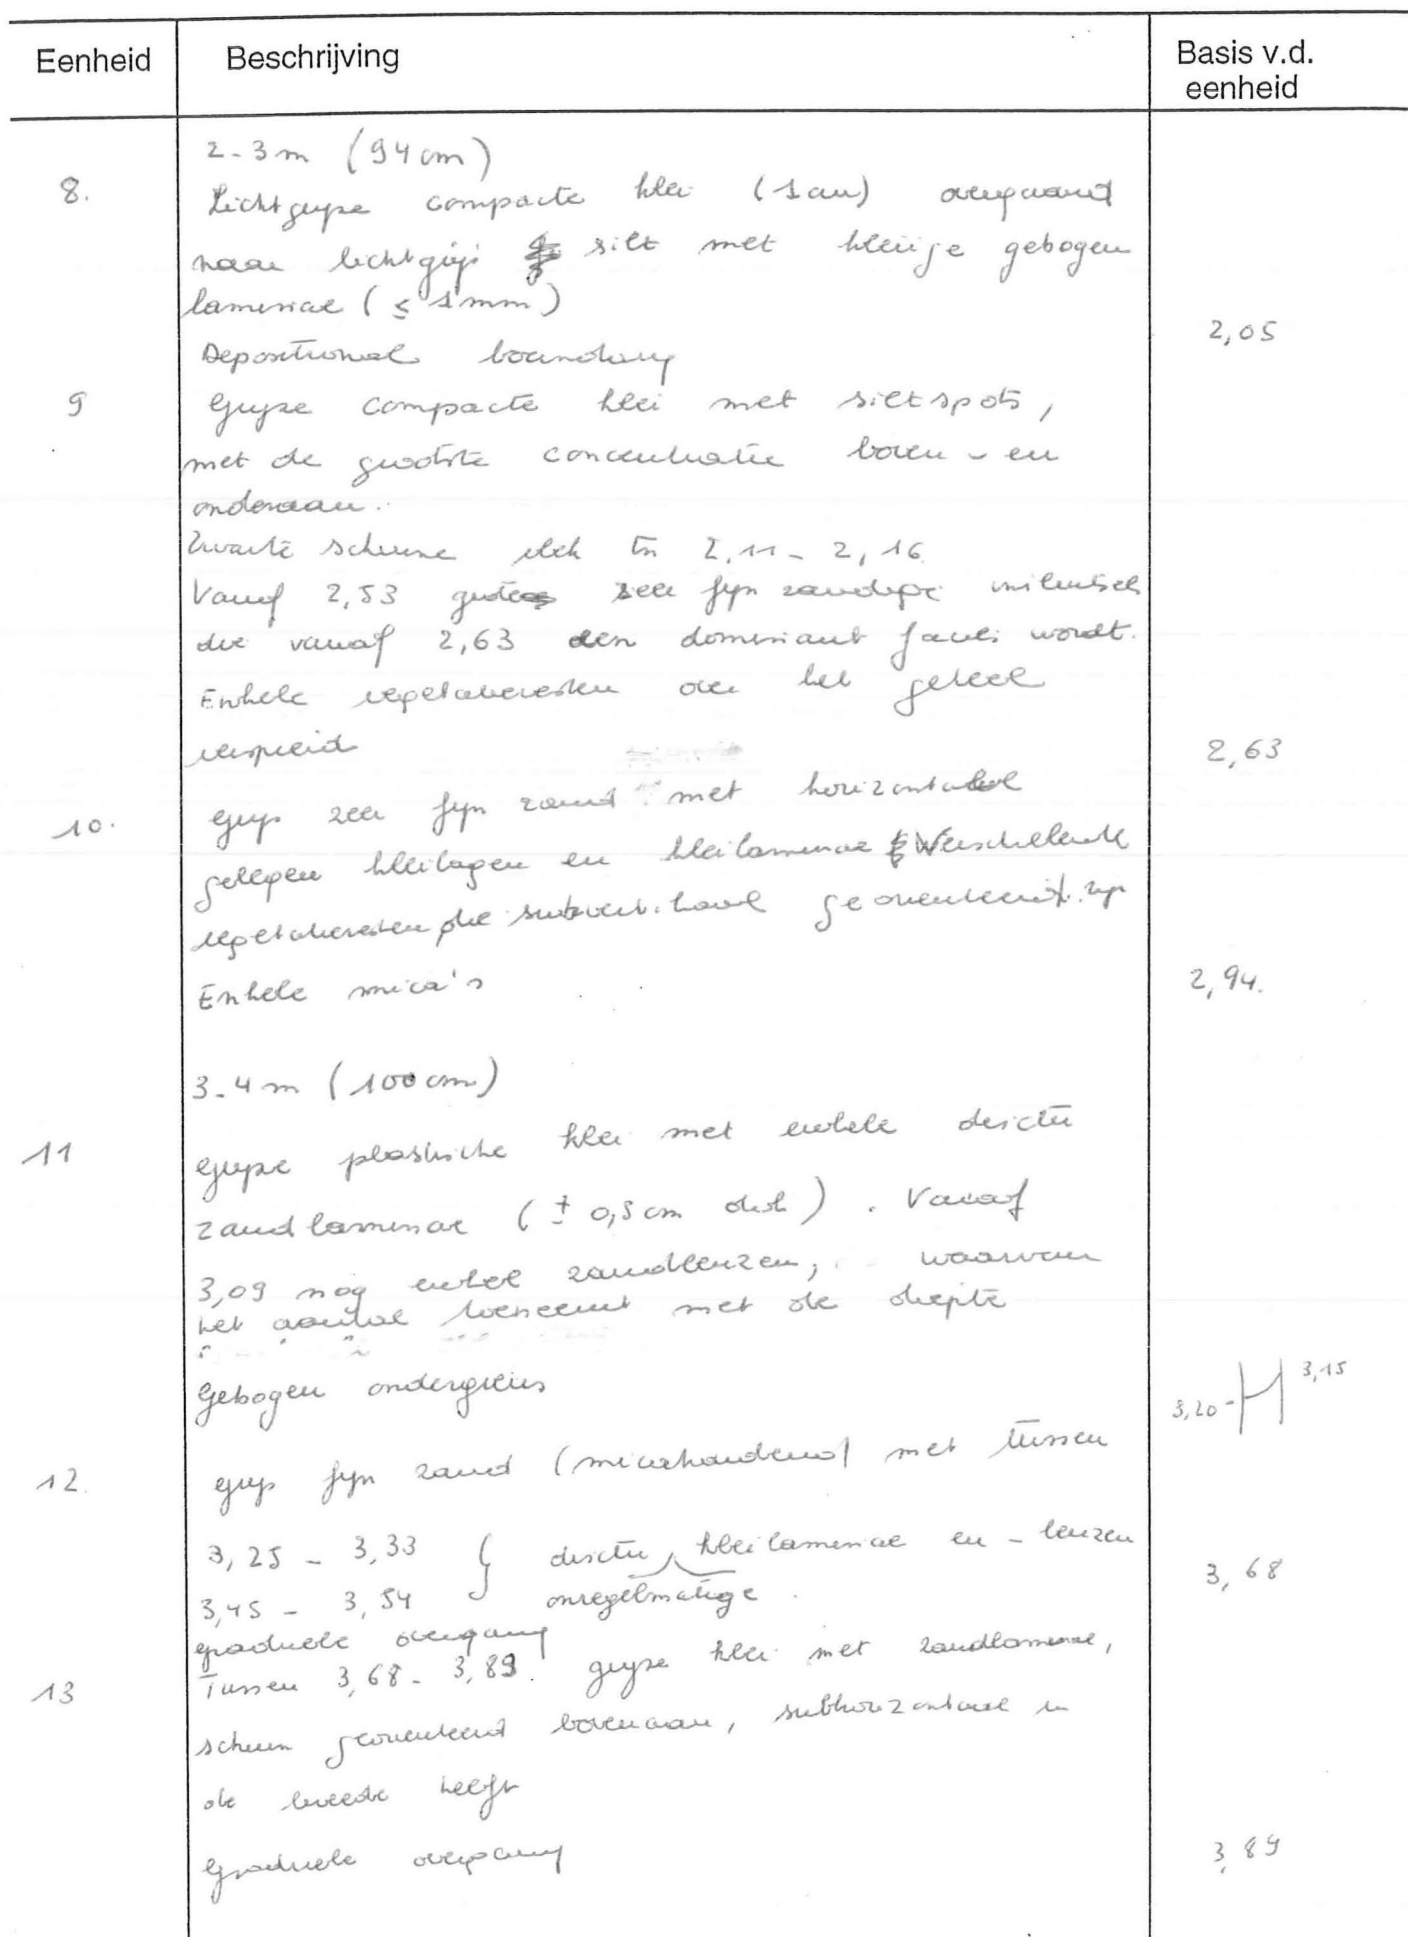 Eenheid Beschrijving Basis v.d. eenheid
2-3 m (94 cm)
8. Lichtgrijze compacte klei (1 cm) overgaand
naar lichtgrijs silt met kleiige gebogen
laminae (≤ 1 mm)
2,05
Depositional boundary
9 Grijze compacte klei met siltspots,
met de grootste concentratie boven- en
onderaan.
Zwarte schuine vlek tn 2,11 - 2,16
Vanaf 2,53 zeer fijn zandige
die vanaf 2,63 den dominant facies wordt.
Enkele vegetatieresten over het geheel
verspreid 2,63
10. Grijs zeer fijn zand met horizontaal
gelegen kleilagen en kleilaminae Verschillende
vegetatieresten die subverticaal georienteerd zijn
Enkele mica's 2,94.
3-4 m (100 cm)
11 Grijze plastische klei met enkele
zandlaminae (± 0,5 cm dik). Vanaf
3,09 nog enkel zandlenzen, waarvan
het aantal toeneemt met de diepte
Gebogen ondergrens 3,20 - 3,15
12. Grijs fijn zand (micahoudend) met tussen
3,25 - 3,33 } kleilaminae en -lenzen
3,45 - 3,54 onregelmatige
3,68
Graduele overgang
13 Tussen 3,68 - 3,89 grijze klei met zandlaminae,
schuin georienteerd bovenaan, subhorizontaal in
de tweede helft
Graduele overgang 3,89